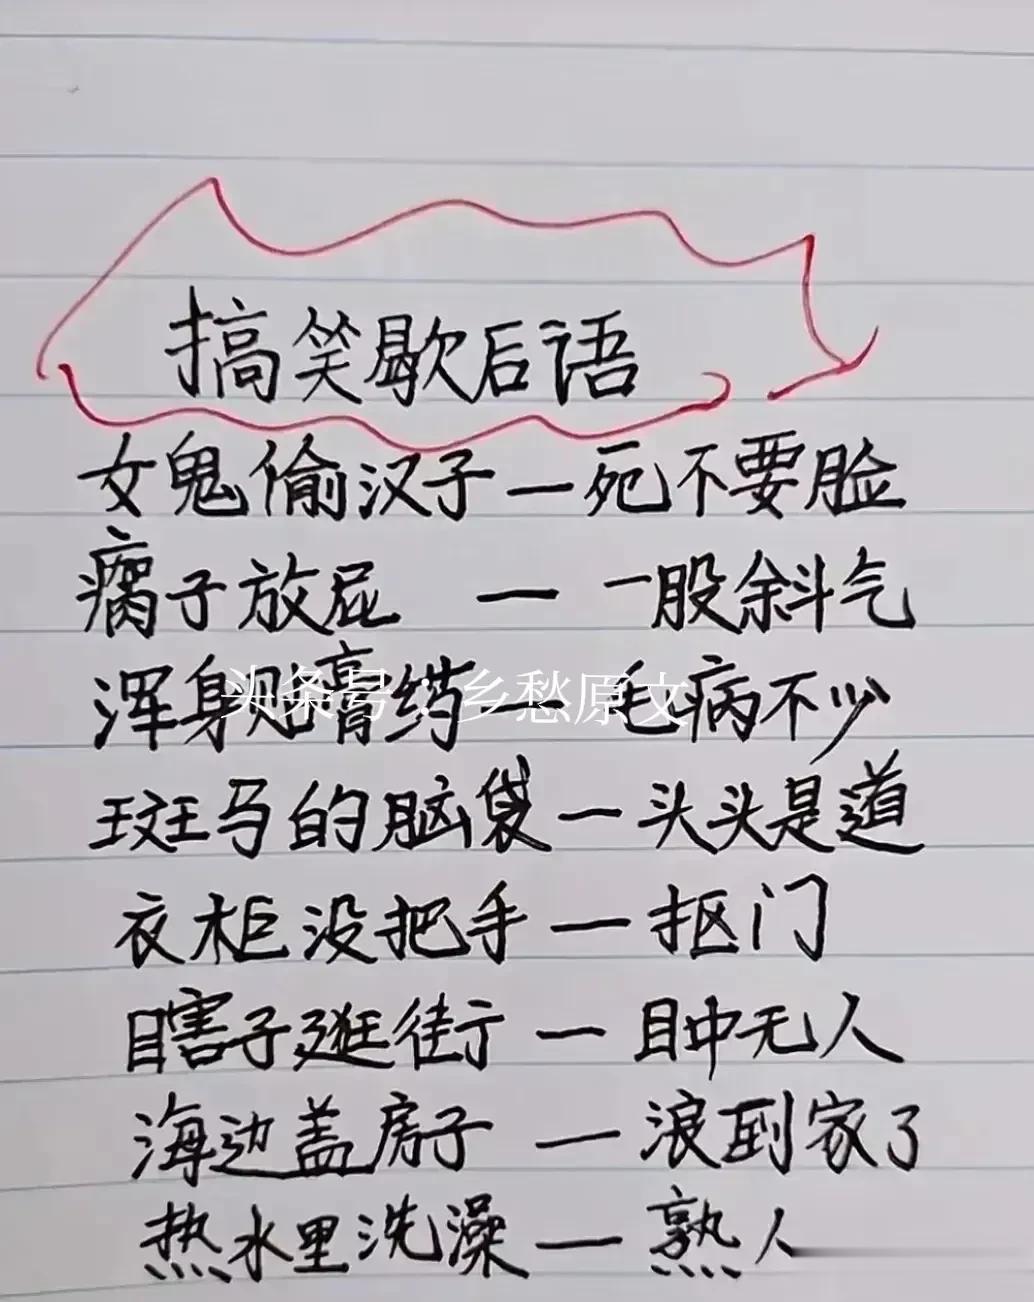 搞笑歇后语
女鬼偷汉子—死不要脸
瘸子放屁 — 一股余斜气
浑身贴膏药—毛病不少
头条号:乡愁原文
斑马的脑袋—头头是道
衣柜没把手—抠门
瞎子逛街 — 目中无人
海边盖房子 — 浪到家了
热水里洗澡—熟人